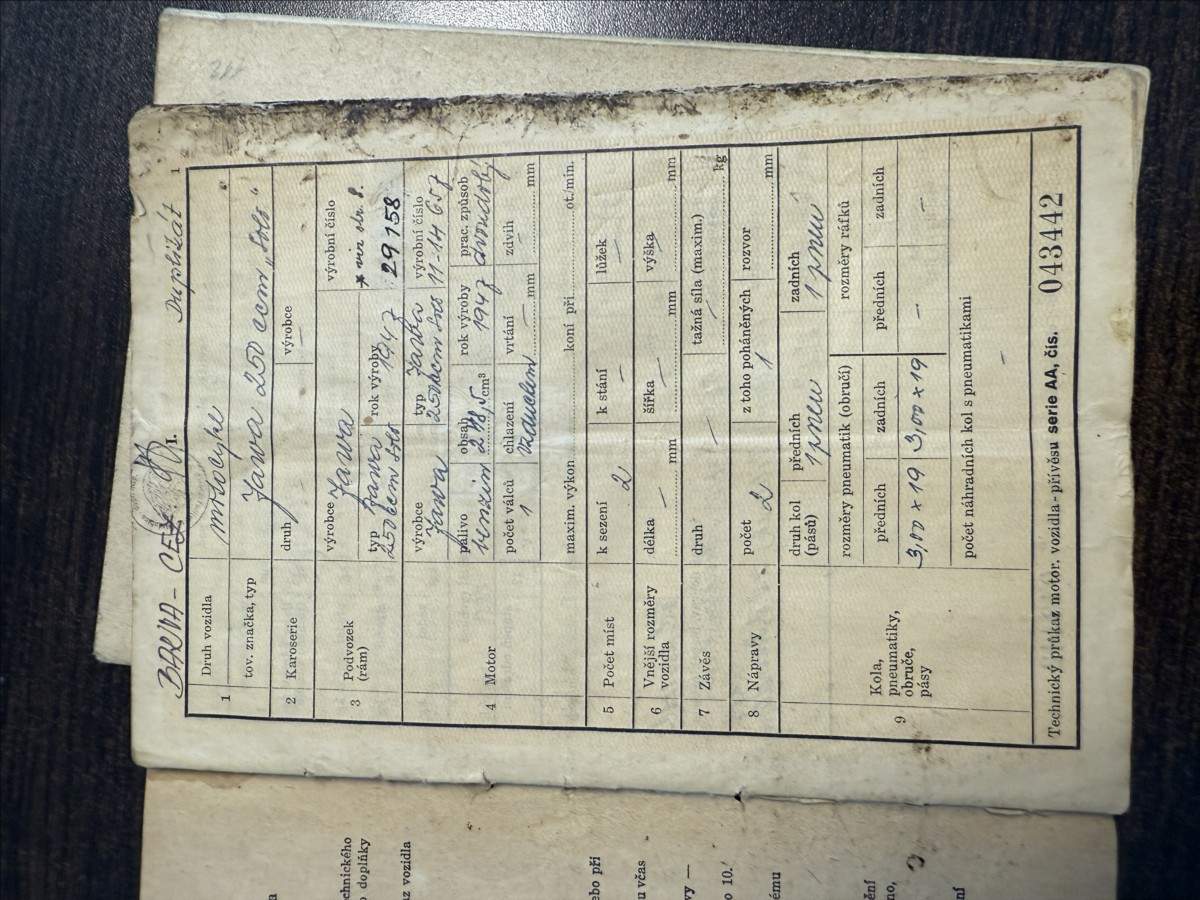 Duplikát 1
BARVA – I.
1 Druh vozidla motocykl
tov. značka, typ Jawa 250 ccm „Solo“
2 Karoserie druh výrobce —
3 Podvozek (rám) výrobce Jawa výrobní číslo
* viz str. 8.
typ Jawa rok výroby
250 ccm Solo 1947 29158
4 Motor výrobce typ Jawa výrobní číslo
Jawa 250 ccm Solo 11-14 657
palivo obsah rok výroby prac. způsob
benzin 248,5 cm³ 1947 dvoudobý
počet válců chlazení vrtání zdvih
1 vzduchem — mm — mm
maxim. výkon koní při ot./min.
5 Počet míst k sezení k stání lůžek
2 — —
6 Vnější rozměry vozidla délka šířka výška
— mm — mm — mm
7 Závěs druh — tažná síla (maxim.) — kg
8 Nápravy počet z toho poháněných rozvor
2 1 mm
9 Kola, pneumatiky, obruče, pásy
druh kol (pásů) předních zadních
1 pneu 1 pneu
rozměry pneumatik (obručí) rozměry ráfků
předních zadních předních zadních
3,00 x 19 3,00 x 19 — —
počet náhradních kol s pneumatikami
—
Technický průkaz motor. vozidla - přívěsu serie AA, čís. 043442
chnického
o doplňky
az vozidla
ebo při
u včas
vy —
o 10.
ému
ění
no,
ní